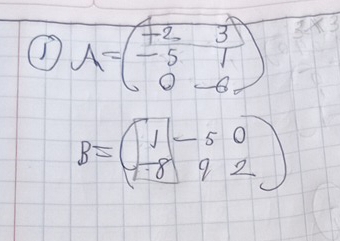 ① A = ( -2 3
-5 1
0 -6 )
B = ( 1 -5 0
-8 9 2 )